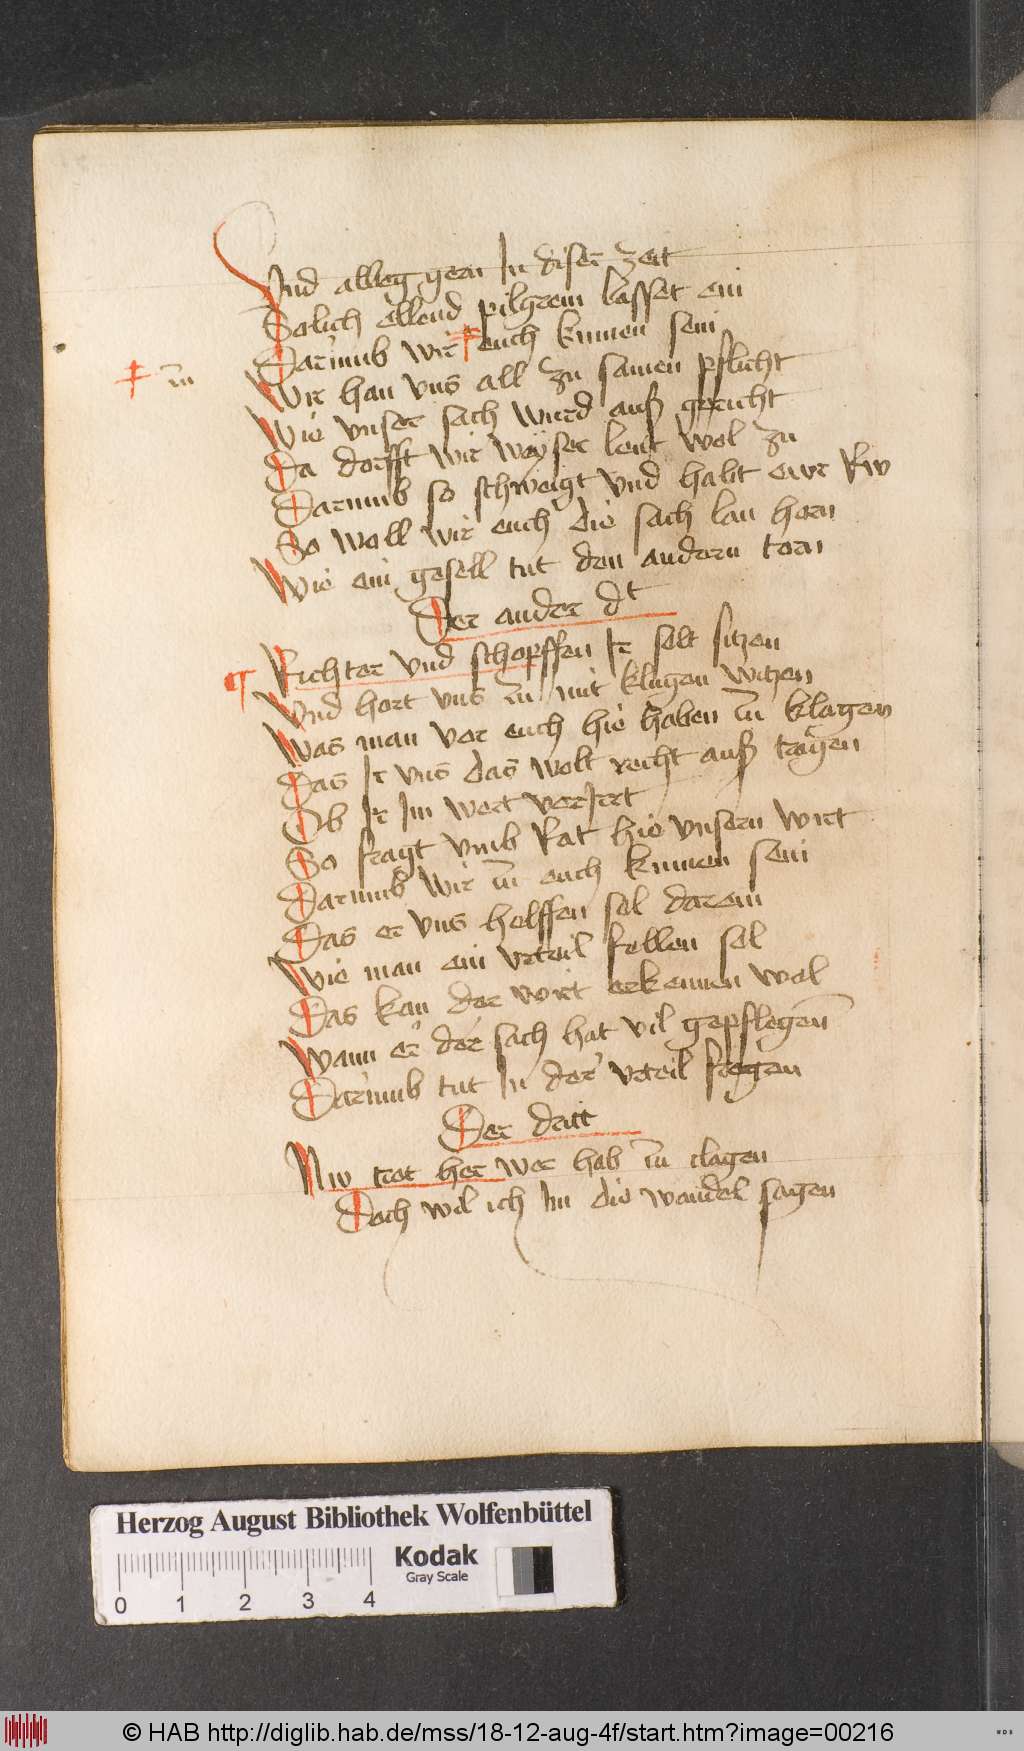 Vnd allweg gern In diser zeit
Solich ellend pilgrem lasset ein
Darumb wir ‡ euch kumen sein
‡ zu
Wir han vns all zu samen pflicht
Wie vnser sach wurd auß gericht
Da dorfft wir weyser leut wol zu
Darumb so schweigt vnd habt ewr Rw
So woll wir euch die sach lan horn
Wie ein gesell tut den andern torn
Der ander dt
¶ Richter vnd schopffen Ir solt sitzen
Vnd hort vns zu mit klugen witzen
Was man vor euch hie haben zu klagen
Das Ir vns das wolt recht auß tragen
Ob Ir Im wert verJrrt
So fragt vmb Rat hie vnsern wirt
Darumb wir zu euch kumen sein
Das er vns helffen sol darein
Wie man ein vrteil fellen sol
Das kan der wirt erkennen wol
Wann er der sach hat vil gepflegen
Darumb tut In der vrteil fregen
Der dritt
Nw tret her wer hab zu clagen
Doch wil ich Im die wandel sagen
Herzog August Bibliothek Wolfenbüttel
Kodak
Gray Scale
0 1 2 3 4
© HAB http://diglib.hab.de/mss/18-12-aug-4f/start.htm?image=00216